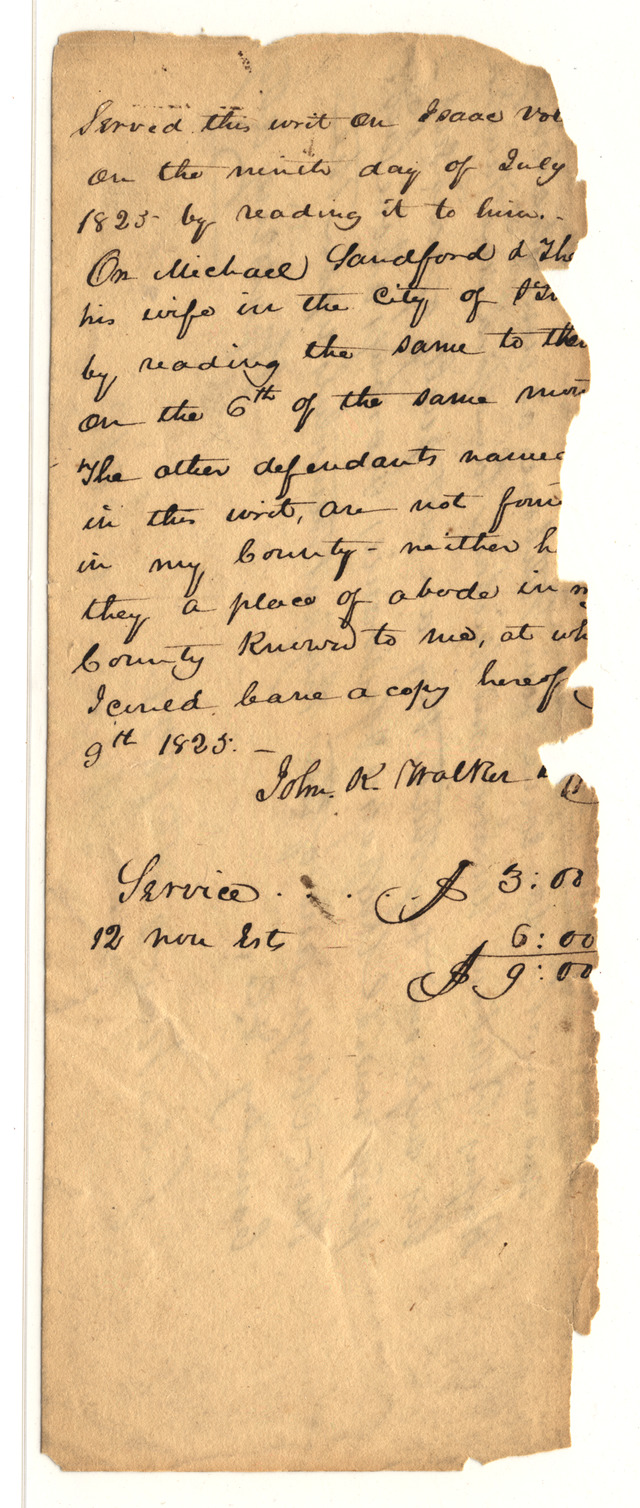 Served this writ on Isaac
on the ninth day of July
1825 by reading it to him. -
On Michael Sandford &
his wife in the City of
by reading the same to
on the 6th of the same
The other defendants
in this writ, are not
in my County - neither
they a place of abode in
County Known to me, at
I could leave a copy hereof
9th 1825. -
John K. Walker
Service . . . . $ 3:00
12 non Ests 6:00
$ 9:00